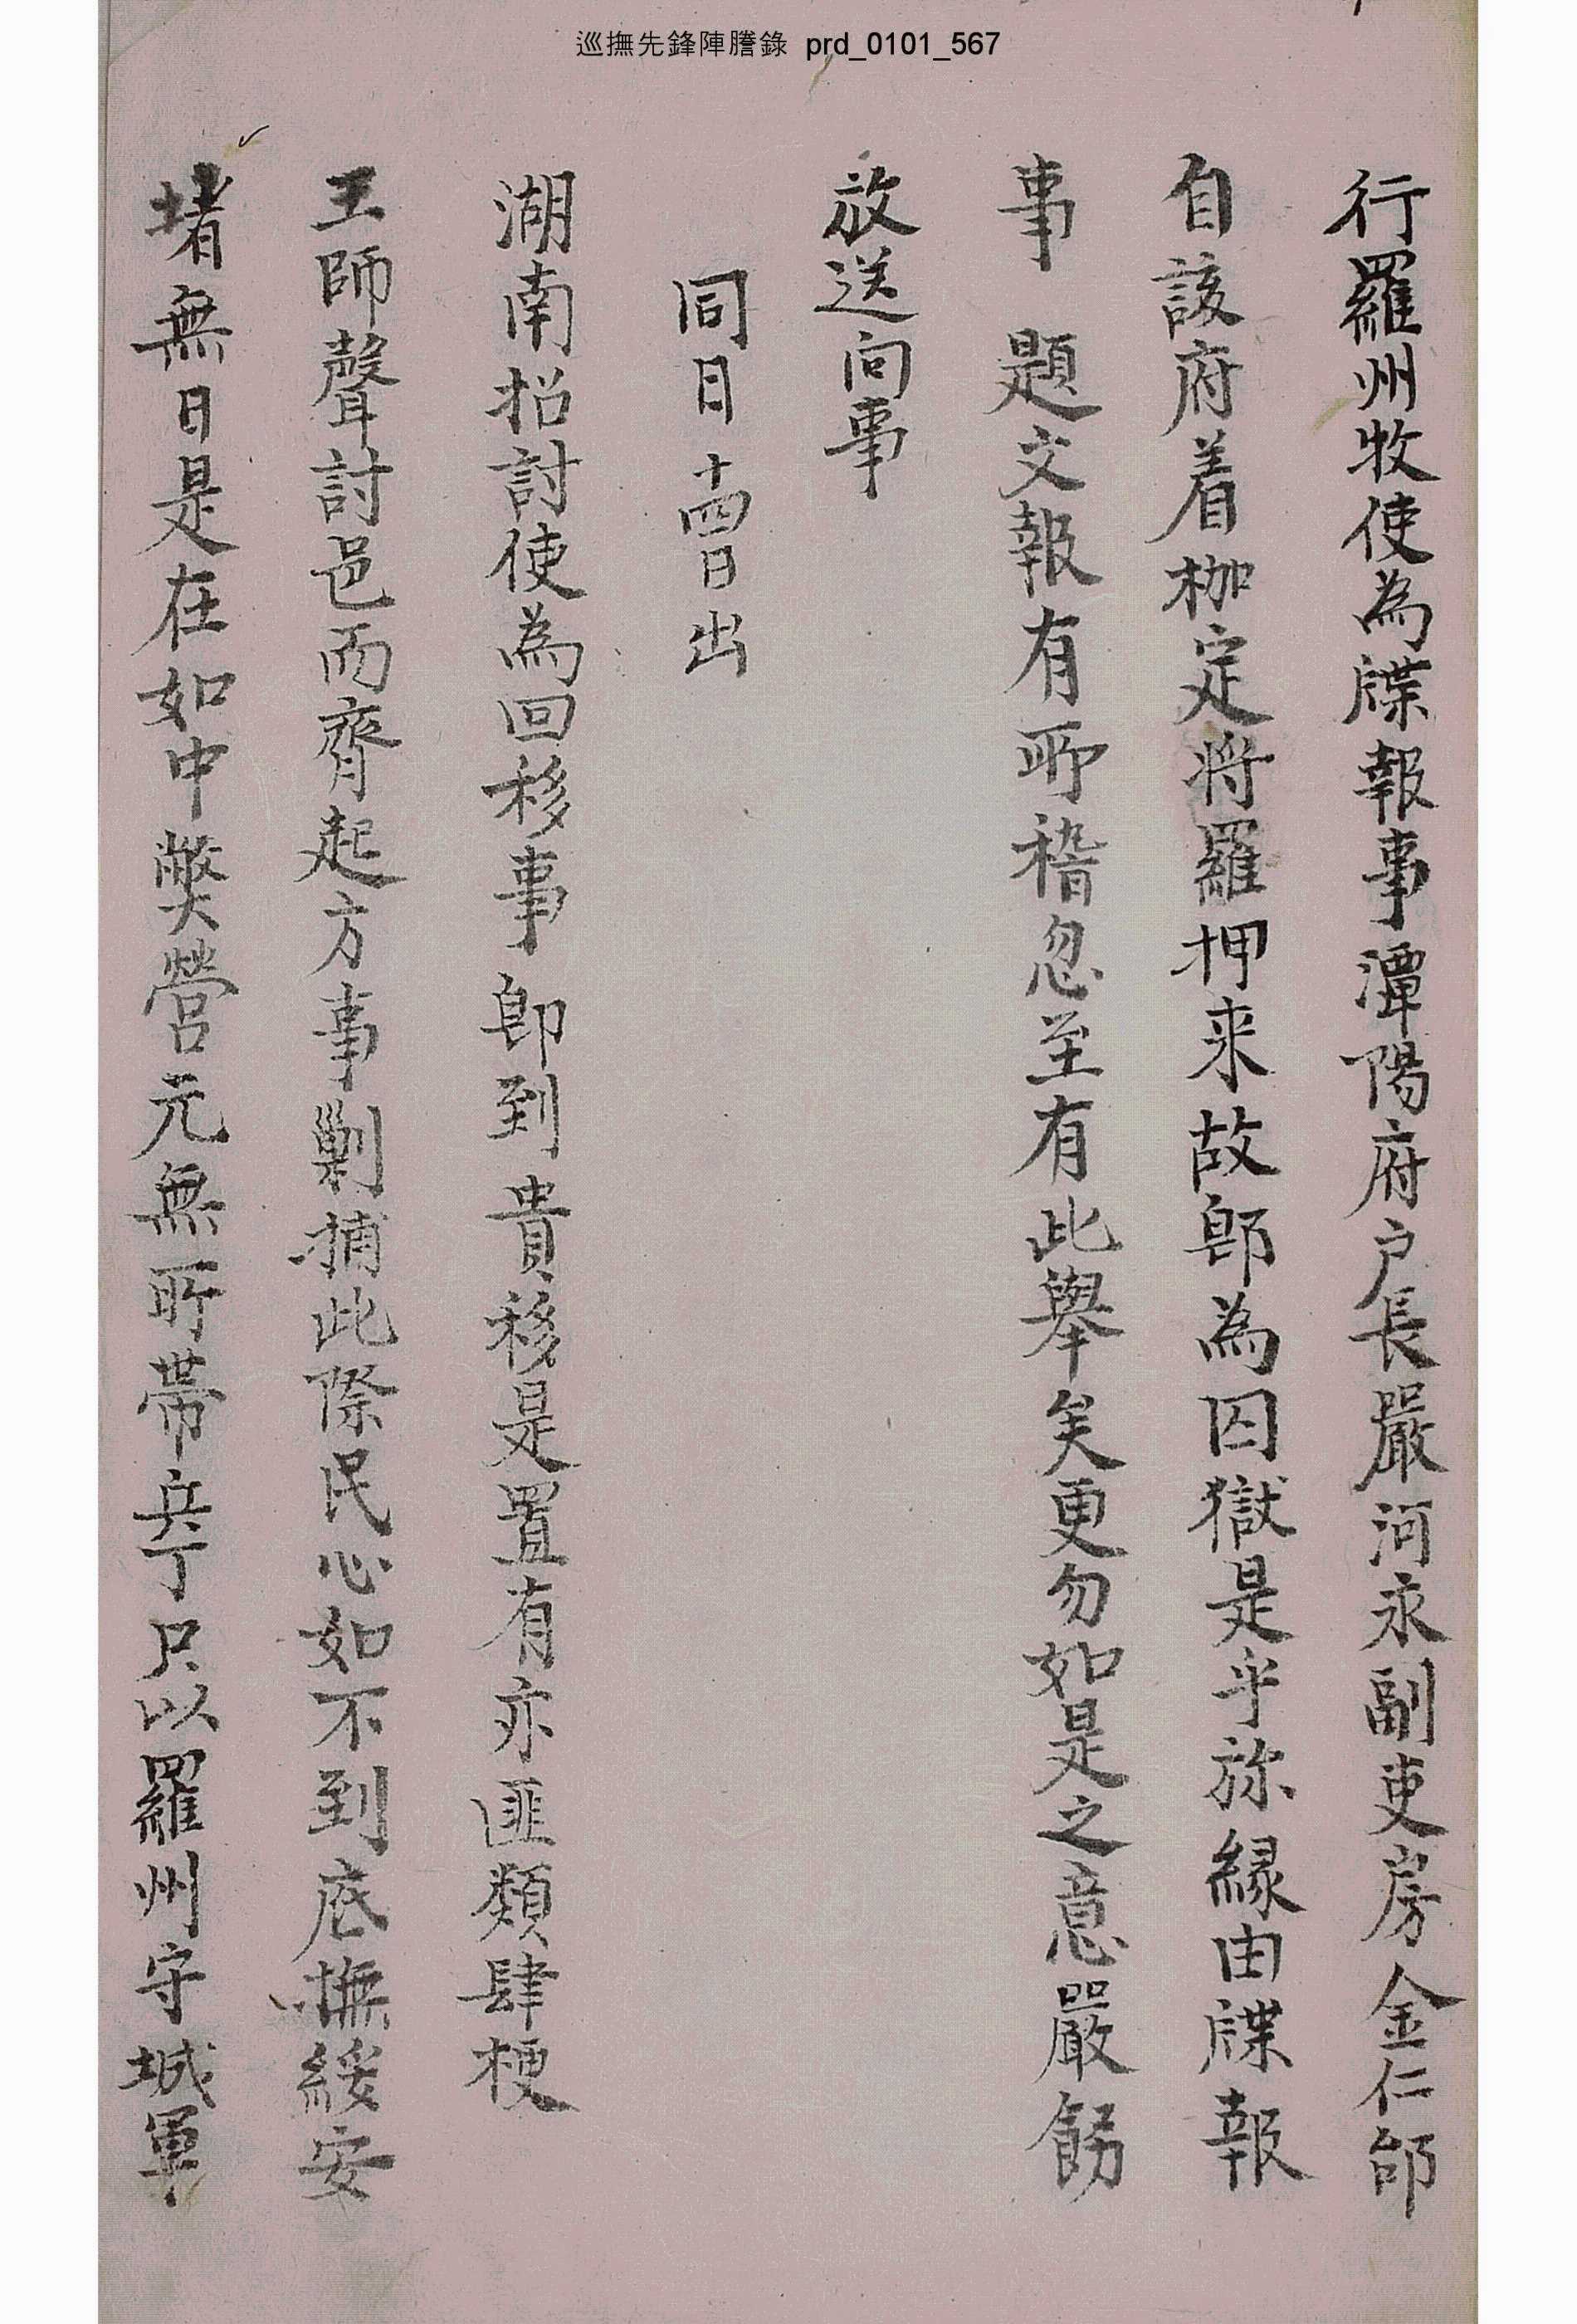 巡撫先鋒陣謄錄 prd_0101_567
行羅州牧使為牒報事潭陽府戶長嚴河永副吏房金仁郃
自該府着枷定將羅押来故卽為囚獄是乎旀緣由牒報
事 題文報有所稽忽至有此擧矣更勿如是之意嚴飭
放送向事
同日 十四日出
湖南招討使為回移事卽到貴移是置有亦匪類肆梗
王師聲討邑而齊起方事剿捕此際民心如不到底撫綏安
堵無日是在如中弊營元無所帶兵丁只以羅州守城軍